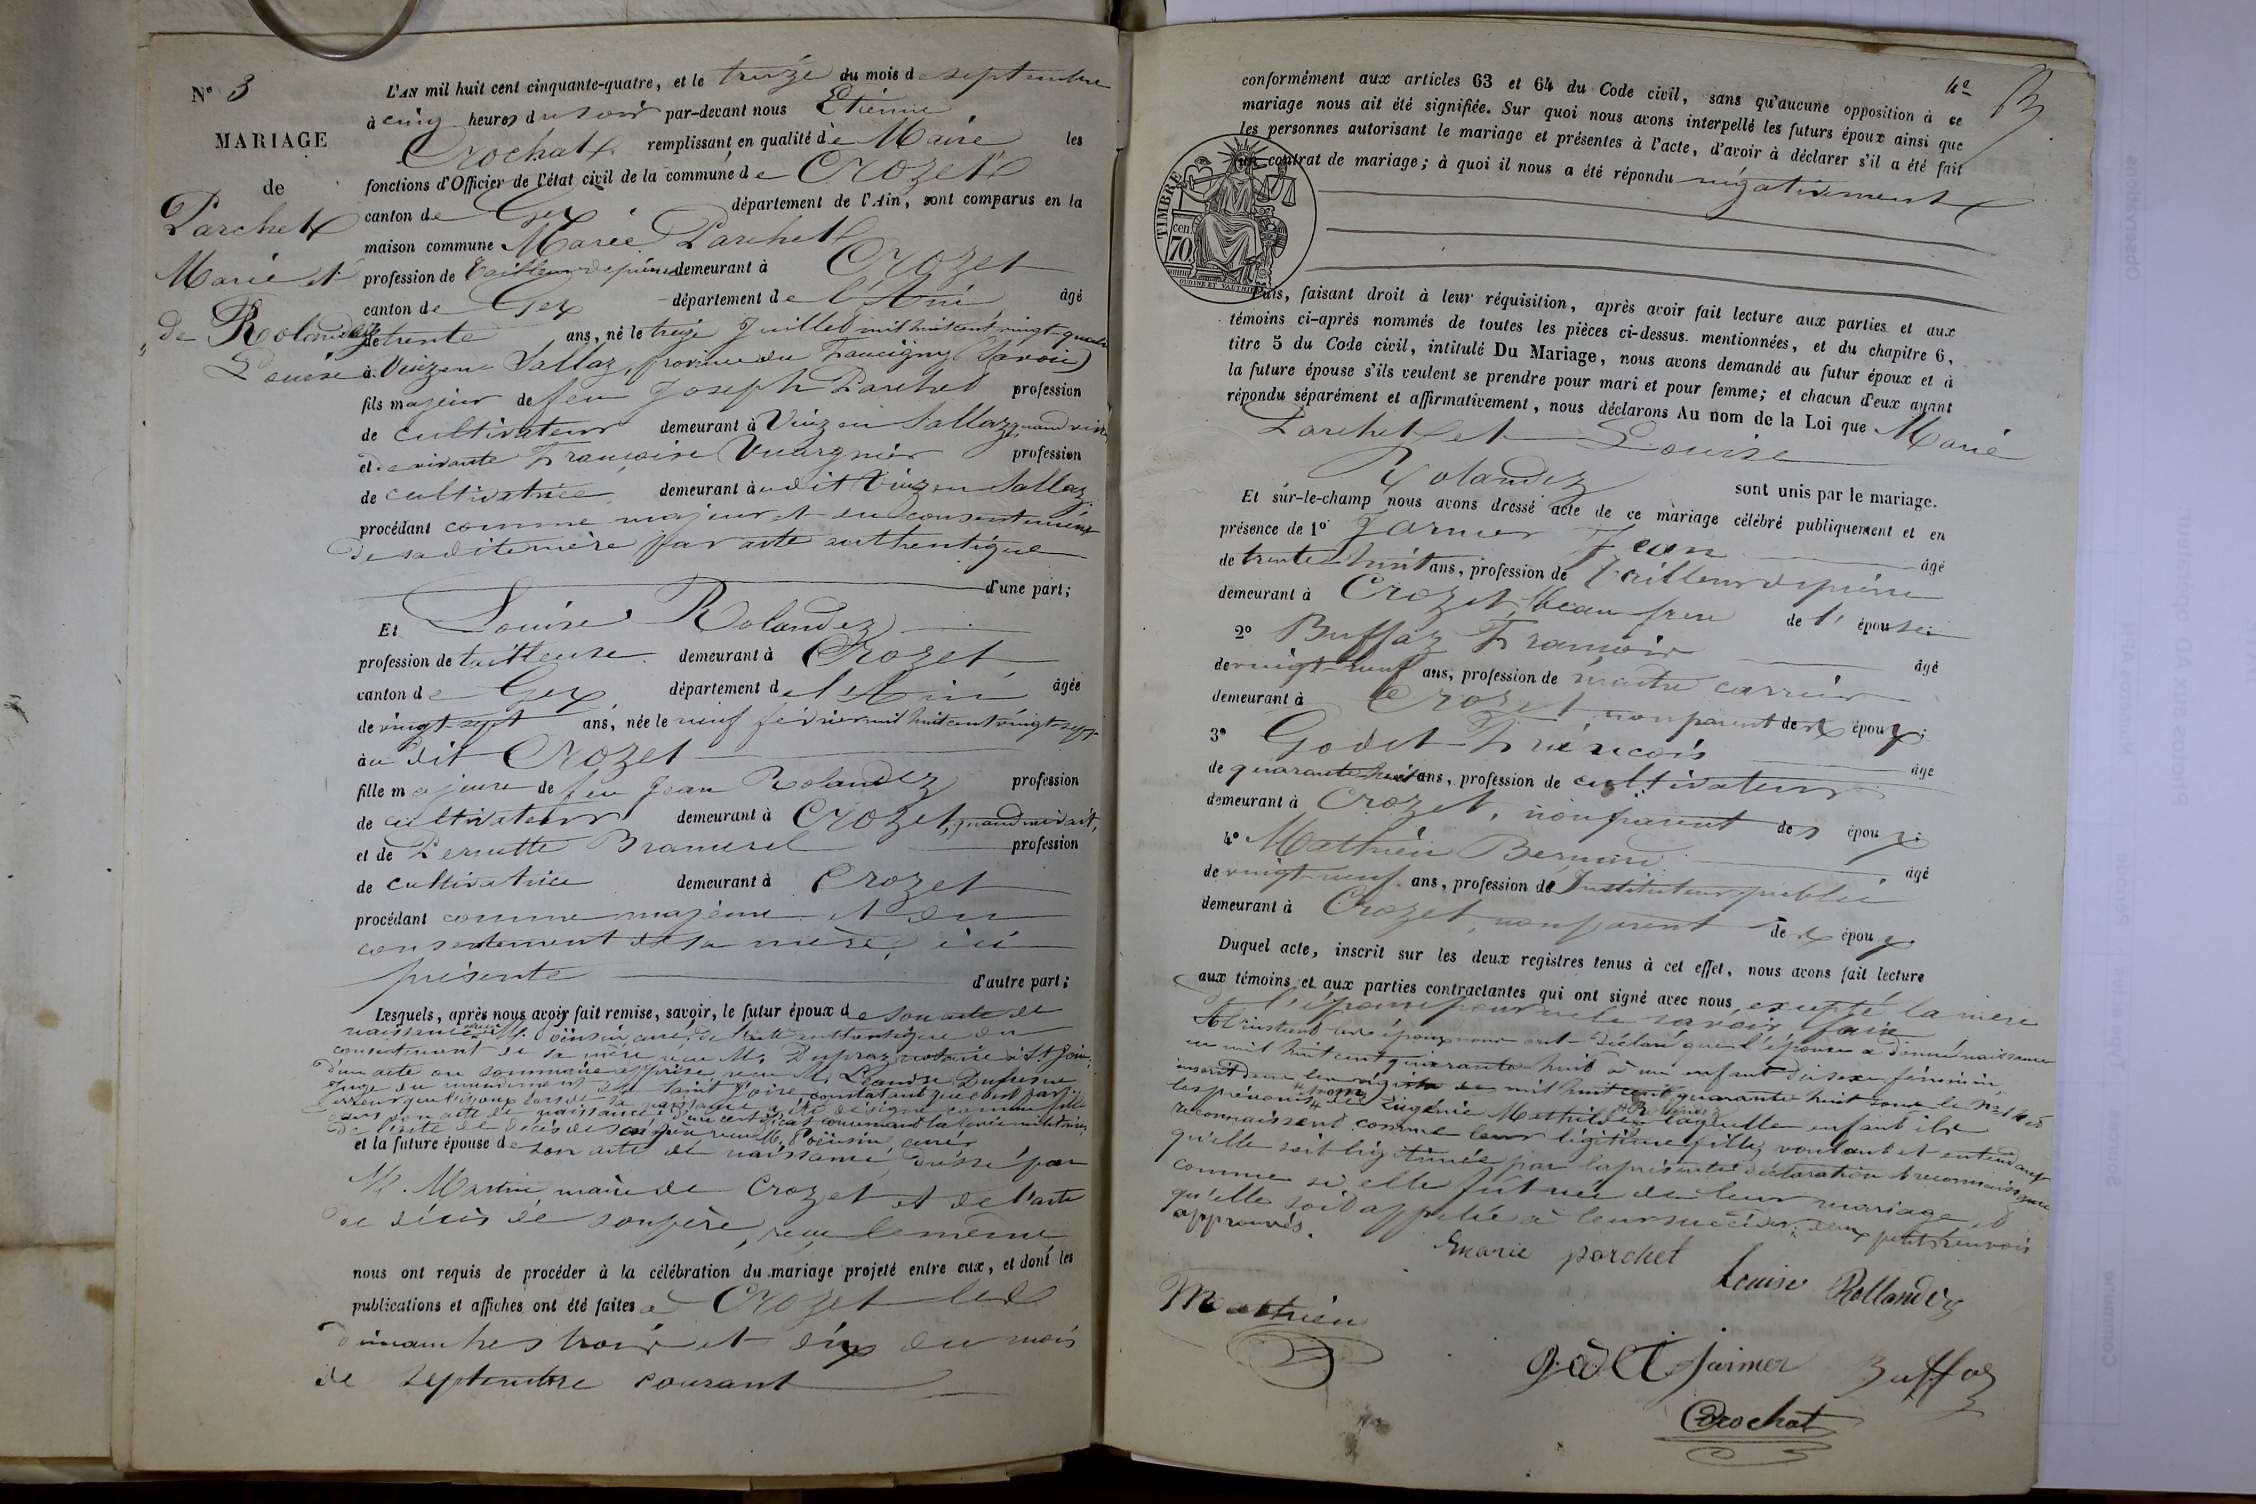 N° 3
MARIAGE
de
Parchet
Marie et
de Rolandez
Louise
L'AN mil huit cent cinquante-quatre, et le treize du mois de septembre
à cinq heures du soir par-devant nous Etienne
Crochat remplissant en qualité de Maire les
fonctions d'Officier de l'état civil de la commune de Crozet
canton de Gex département de l'Ain, sont comparus en la
maison commune Marie Parchet
profession de tailleur de pierre demeurant à Crozet
canton de Gex département de l'Ain âgé
de trente ans, né le treize Juillet mil huit cent vingt-quatre
à Viuz en Sallaz, province du Faucigny (Savoie)
fils majeur de feu Joseph Parchet profession
de cultivateur demeurant à Viuz en Sallaz, quand vivait
et de vivante Françoise Vuargnier profession
de cultivatrice demeurant audit Viuz en Sallaz
procédant comme majeur et du consentement
de sa dite mère par acte authentique
d'une part;
Et Louise Rolandez
profession de tailleuse demeurant à Crozet
canton de Gex département de l'Ain âgée
de vingt-sept ans, née le neuf février mil huit cent vingt-sept
au dit Crozet
fille majeure de feu Jean Rolandez profession
de cultivateur demeurant à Crozet, quand vivait,
et de Pernette Bramerel profession
de cultivatrice demeurant à Crozet
procédant comme majeure et du
consentement de sa mère, ici
présente d'autre part;
Lesquels, après nous avoir fait remise, savoir, le futur époux de son acte de
naissance reçu M. Poënsin curé, de l'acte authentique du
consentement de sa mère reçu M. Dupraz notaire à St Joire,
d'un acte ou sommaire apprise reçu M. Léandre Dufresne
Juge du mandement de Saint Joire, constatant que c'est par
erreur que l'époux lors de sa naissance a été désigné comme fille
dans son acte de naissance, d'un certificat concernant la levée militaire,
de l'acte de décès de son père reçu M. Poënsin curé
et la future épouse de son acte de naissance, dressé par
M. Martin maire de Crozet et de l'acte
de décès de son père, reçu le même
nous ont requis de procéder à la célébration du mariage projeté entre eux, et dont les
publications et affiches ont été faites à Crozet les
dimanches trois et dix du mois
de septembre courant
4e
conformément aux articles 63 et 64 du Code civil, sans qu'aucune opposition à ce
mariage nous ait été signifiée. Sur quoi nous avons interpellé les futurs époux ainsi que
les personnes autorisant le mariage et présentes à l'acte, d'avoir à déclarer s'il a été fait
un contrat de mariage; à quoi il nous a été répondu négativement
TIMBRE
70 cen.
OUDINÉ ET VAUTHIER
Puis, faisant droit à leur réquisition, après avoir fait lecture aux parties et aux
témoins ci-après nommés de toutes les pièces ci-dessus mentionnées, et du chapitre 6,
titre 5 du Code civil, intitulé Du Mariage, nous avons demandé au futur époux et à
la future épouse s'ils veulent se prendre pour mari et pour femme; et chacun d'eux ayant
répondu séparément et affirmativement, nous déclarons Au nom de la Loi que Marie
Parchet et Louise
Rolandez sont unis par le mariage.
Et sur-le-champ nous avons dressé acte de ce mariage célébré publiquement et en
présence de 1° Jarnier Jean âgé
de trente huit ans, profession de tailleur de pierre
demeurant à Crozet, beau frère de l'épouse;
2° Buffaz François âgé
de vingt-neuf ans, profession de maître carrier
demeurant à Crozet, non parent des époux;
3° Godet François âgé
de quarante huit ans, profession de cultivateur
demeurant à Crozet, non parent des époux;
4° Mathieu Bernard âgé
de vingt-neuf ans, profession de Instituteur public
demeurant à Crozet, non parent des époux.
Duquel acte, inscrit sur les deux registres tenus à cet effet, nous avons fait lecture
aux témoins et aux parties contractantes qui ont signé avec nous, excepté la mère
de l'épouse pour ne le savoir faire
A l'instant les époux nous ont déclaré que l'épouse a donné naissance
en mil huit cent quarante huit à un enfant du sexe féminin,
inscrit dans les registres de mil huit cent quarante huit sous le N° 14 et
les prénoms de Eugénie Mathilde Rolandez laquelle enfant ils
reconnaissent comme leur légitime fille, voulant et entendant
qu'elle soit légitimée par la présente déclaration et reconnaissance
comme si elle fut née de leur mariage et
qu'elle soit appelée à leur succéder; deux petits renvois
approuvés.
Marie parchet
Louise Rollandez
Mathieu
godet
jarnier
Buffaz
Crochat